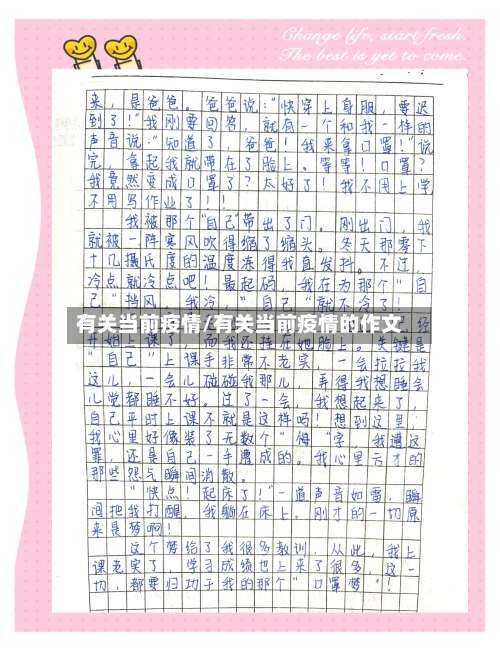 Change life, start fresh.
The best is yet to come.
来，是爸爸。爸爸说：“快穿上身服，要迟
到了！”我刚要回答，就有一个和我一样的
声音说：“知道了，爸爸！我来拿口罩！”说
完，拿起我就带在了脸上。等等！口罩？
我竟然变成口罩了？太好了！我不用上学
不用写作业了！！
我被那个“自己”带出了门。刚出门，我
就被一阵寒风吹得缩了缩头。冬天那零下
十几摄氏度的温度冻得我直发抖。不过，
冷点就冷点吧！最起码，我在为那个“自
己”挡风，我冷，“自己”就不冷了！
有关当前疫情/有关当前疫情的作文
“自己”上课手非常不老实，一会拉拉我
这儿，一会儿碰碰我那儿，弄得我想睡会
儿觉都睡不好。过了一会，我想起来了，
自己平时上课不就是这样吗！想到这里，
我心里好像装了无数个“悔”字，我遭这
罪，还是自己一手遭成的。我心里云才的
那些怨气瞬间消散。
“快点！起床了！”一道声音如雷，瞬
间把我打醒，我躺在床上。刚才的一切原
来是梦啊！
这个梦给了我很多教训，从此，我上
课老实了，学习成绩也上来了很多，这一
切，都要归功于我的那个“口罩梦”！